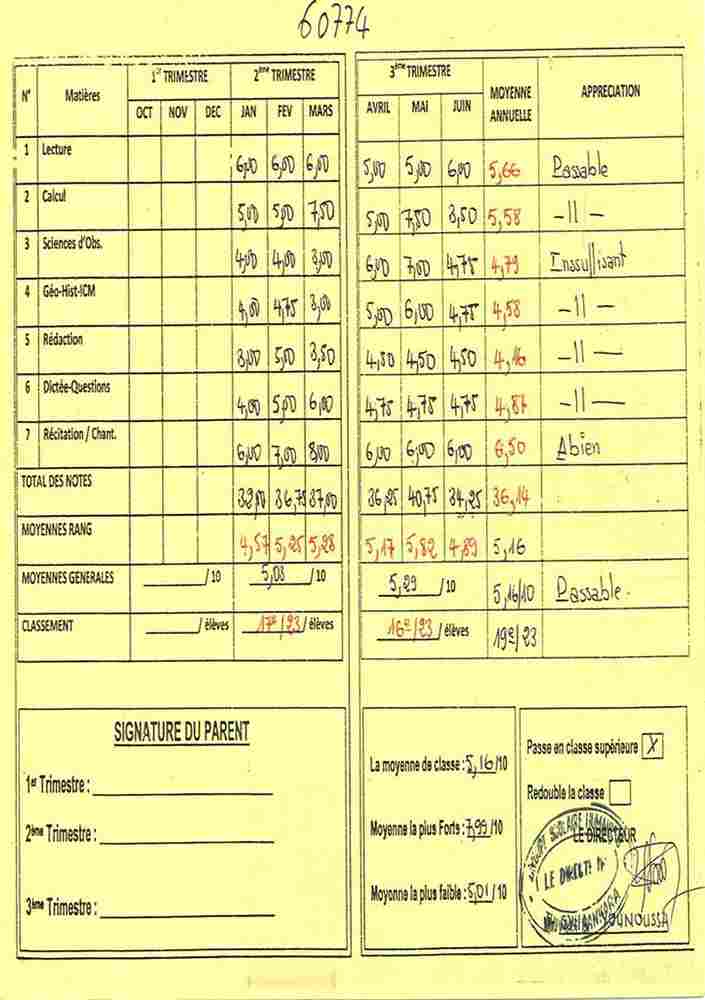 60774
N° Matières 1er TRIMESTRE 2ème TRIMESTRE 3ème TRIMESTRE MOYENNE ANNUELLE APPRECIATION
OCT NOV DEC JAN FEV MARS AVRIL MAI JUIN
1 Lecture 6,00 6,00 6,00 5,00 5,00 6,00 5,66 Passable
2 Calcul 5,00 5,00 7,50 5,00 7,50 3,50 5,58 -||-
3 Sciences d'Obs. 4,00 4,00 3,00 6,00 7,00 4,75 4,79 Inssuffisant
4 Géo-Hist-ICM 4,00 4,75 3,00 5,00 6,00 4,75 4,58 -||-
5 Rédaction 3,00 5,00 3,50 4,50 4,50 4,50 4,16 -||-
6 Dictée-Questions 4,00 5,00 6,00 4,75 4,75 4,75 4,87 -||-
7 Récitation / Chant. 6,00 7,00 8,00 6,00 6,00 6,00 6,50 Abien
TOTAL DES NOTES 32,00 36,75 37,00 36,25 40,75 34,25 36,14
MOYENNES RANG 4,57 5,25 5,28 5,17 5,82 4,89 5,16
MOYENNES GENERALES /10 5,03 /10 5,29 /10 5,16/10 Passable.
CLASSEMENT / élèves 17e/23 / élèves 16e/23 / élèves 19e/23
SIGNATURE DU PARENT
1er Trimestre :
2ème Trimestre :
3ème Trimestre :
La moyenne de classe : 5,16/10
Moyenne la plus Forts : 7,99/10
Moyenne la plus faible : 5,01/10
Passe en classe supérieure X
Redouble la classe
LE DIRECTEUR
YOUNOUSSA